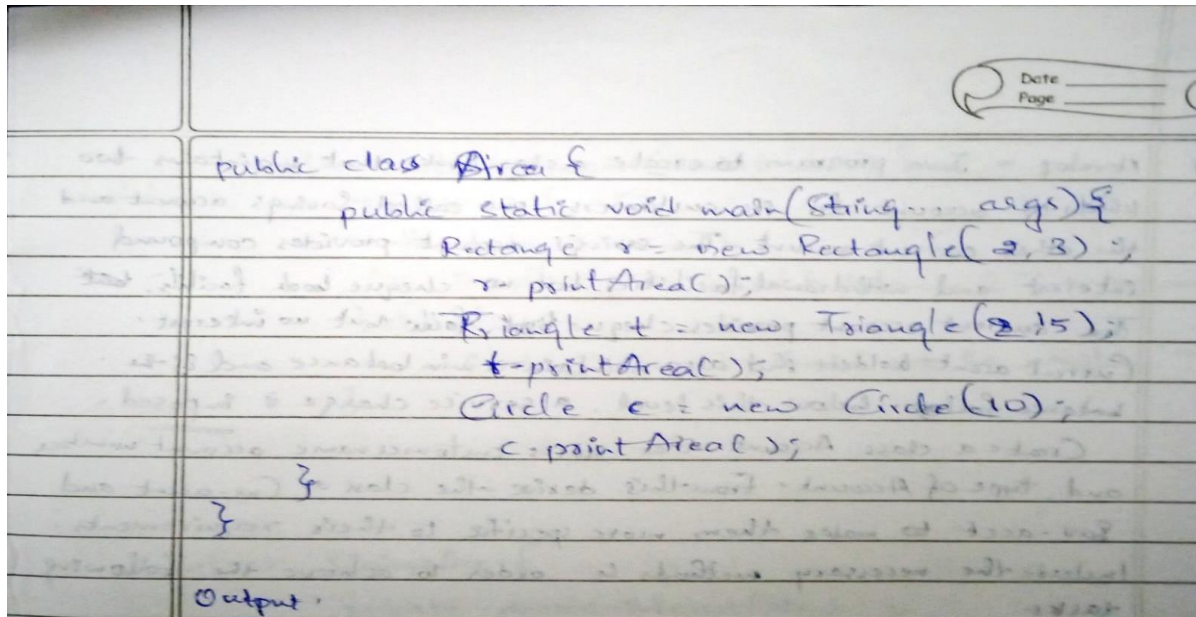 Date
Page
public class Area {
public static void main(String args){
Rectangle r= new Rectangle(2,3);
r- printArea();
Riangle t = new Triangle(2,15);
t-printArea();
Circle c = new Circle(10);
c.printArea();
}
}
Output.